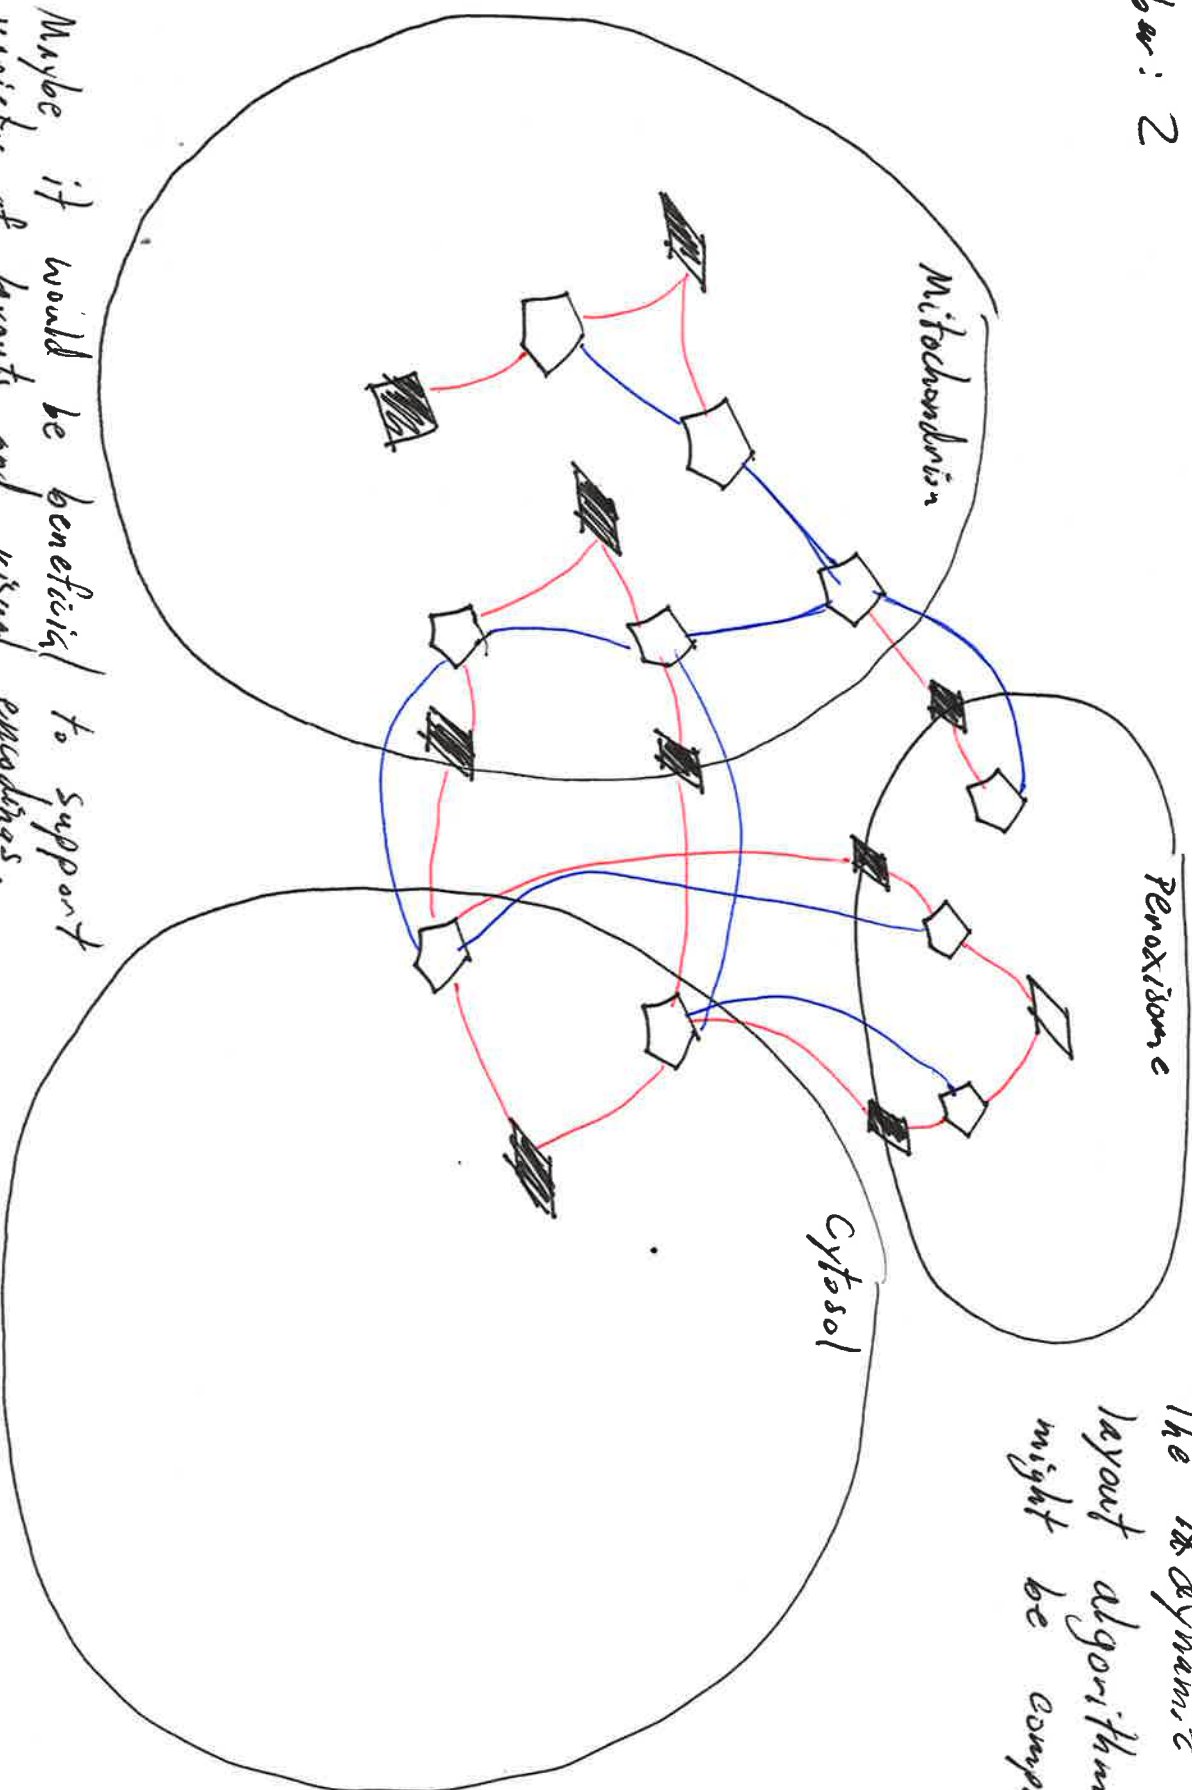 : 2
Mitochondrion
Peroxisome
Cytosol
The dynamic
layout algorithm
might be
Maybe it would be beneficial to support
layouts and visual encodings.